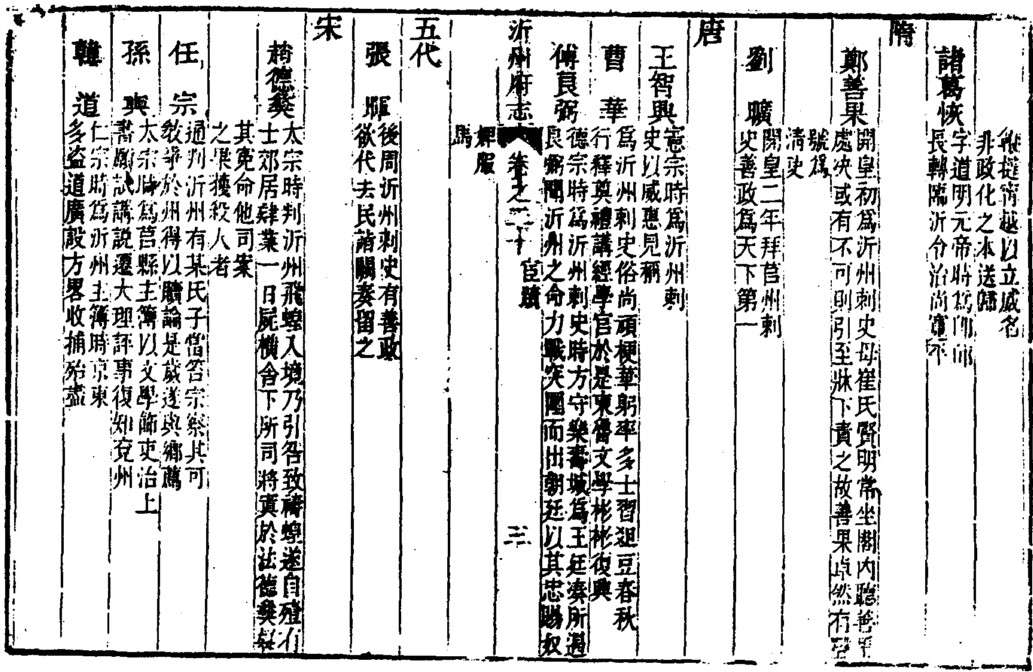 鞭撻甯越以立威名
非政化之本送歸
諸葛恢
字道明元帝時為即邱
長轉臨沂令治尚寬平
隋
鄭善果
開皇初為沂州刺史母崔氏賢明常坐閤内聽善果
處决或有不可則引至牀下責之故善果卓然有聲
號為
清吏
劉曠
開皇二年拜莒州刺
史善政為天下第一
唐
王智興
憲宗時為沂州刺
史以威惠見稱
曹華
為沂州刺史俗尚頑梗華躬率多士習俎豆春秋
行釋奠禮講經學官於是東魯文學彬彬復興
傅良弼
德宗時為沂州刺史時方守樂壽城為王廷湊所逼
良弼聞沂州之命力戰突圍而出朝廷以其忠賜奴
沂州府志 卷之二十 宦蹟 三
婢服
馬
五代
張暉
後周沂州刺史有善政
欲代去民詣闕奏留之
宋
趙德彝
太宗時判沂州飛蝗入境乃引咎致禱蝗遂自殪有
士郊居肄業一日屍橫舍下所司將寘於法德彝疑
其寃命他司案
之果獲殺人者
任宗
通判沂州有某氏子嘗笞宗察其可
教舉於州得以贖論是歲遂與鄉薦
孫奭
太宗時為莒縣主簿以文學飾吏治上
書願試講說遷大理評事復知兗州
韓道
仁宗時為沂州主簿時京東
多盗道廣設方畧收捕殆盡